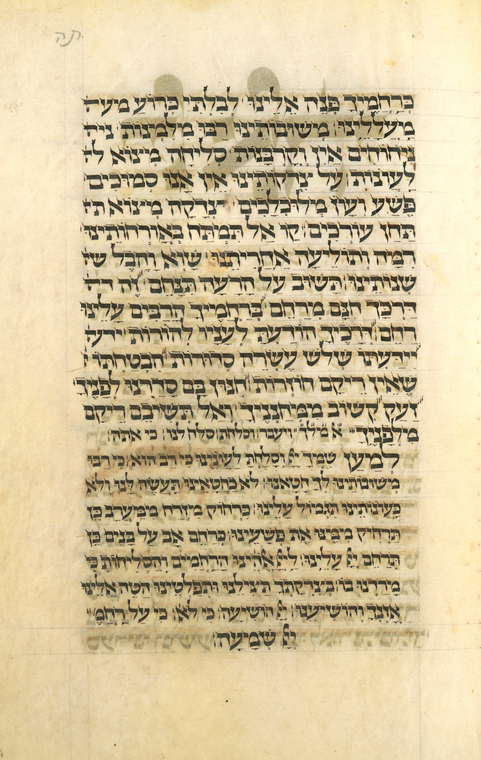 תה
כרחמיך פנה אלינו לבלתי כרוע מעה
מעללינו משובותינו רבו מלמנות ניח
ניחוחים אין וקרבנות סליחה מצוא לח
על צדקותינו אין אנו סמוכים
פשע ועון מלוכלכים צדקה מצוא תח
תחן עורכים קו אל תמתח באורחותינו
רמה ותוליעה אחריתנו שוא והבל ש
שנותינו תשיב על הרעה תנחם זה דר
דרכך חנם מרחם ברחמיך הרבים עלינו
רחם דרכיך הודעת לעניו להורות ידע
שלש עשרה סדורות הבטחתו
שאין ריקם חוזרות חנון בם סדרנו לפניך
זעק קשוב ממחנניך ואל תשיבם ריקם
מלפניך א מלך ויעבר וסלחת סלח לנו כי אתה
למען שמך יי וסלחת לעונינו כי רב הוא כי רבו
משובותינו לך חטאנו לא כחטאינו תעשה לנו ולא
כעונותינו תגמול עלינו כרחוק מזרח ממערב כן
תרחיק ממנו את פשעינו כרחם אב על בנים כן
תרחם יי עלינו ליי אלהינו הרחמים והסליחות כי
מרדנו בו בצדקתך תצילנו ותפלטינו הטה אלינו
אזנך והושיענו יי הושיעה כי לא כי על רחמ
יי שמיעה